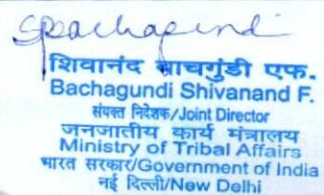 शिवानंद बाचगुंडी एफ.
Bachagundi Shivanand F.
संयक्त निदेशक/Joint Director
जनजातीय कार्य मंत्रालय
Ministry of Tribal Affairs
भारत सरकार/Government of India
नई दिल्ली/New Delhi